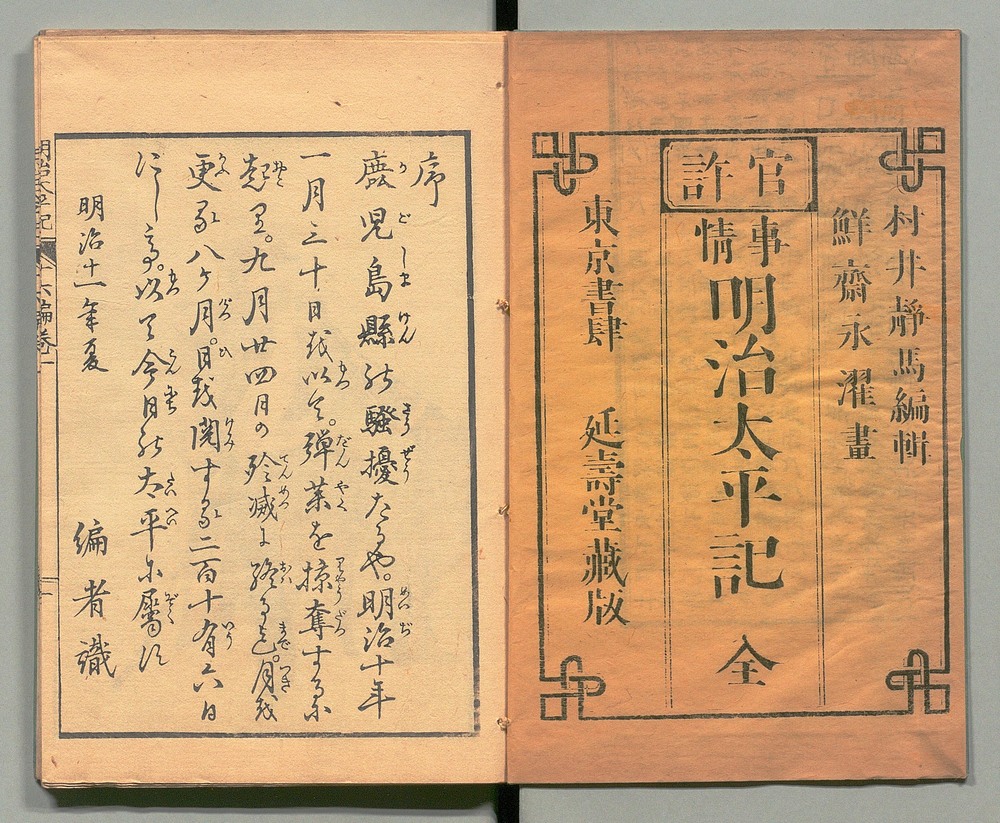 村井靜馬編輯
鮮齋永濯畫
官許
事情 明治太平記 全
東京書肆 延壽堂藏版
序
鹿児島縣の騒擾たるや。明治十年
一月三十日を以て。弾薬を掠奪するに
起り。九月廿四日の殄滅に終る迄。月を
更る八ケ月。日を閲する二百十有六日
にして。以て今日の太平に屬す
明治十一年夏
編者識
明治太平記 十六編巻一